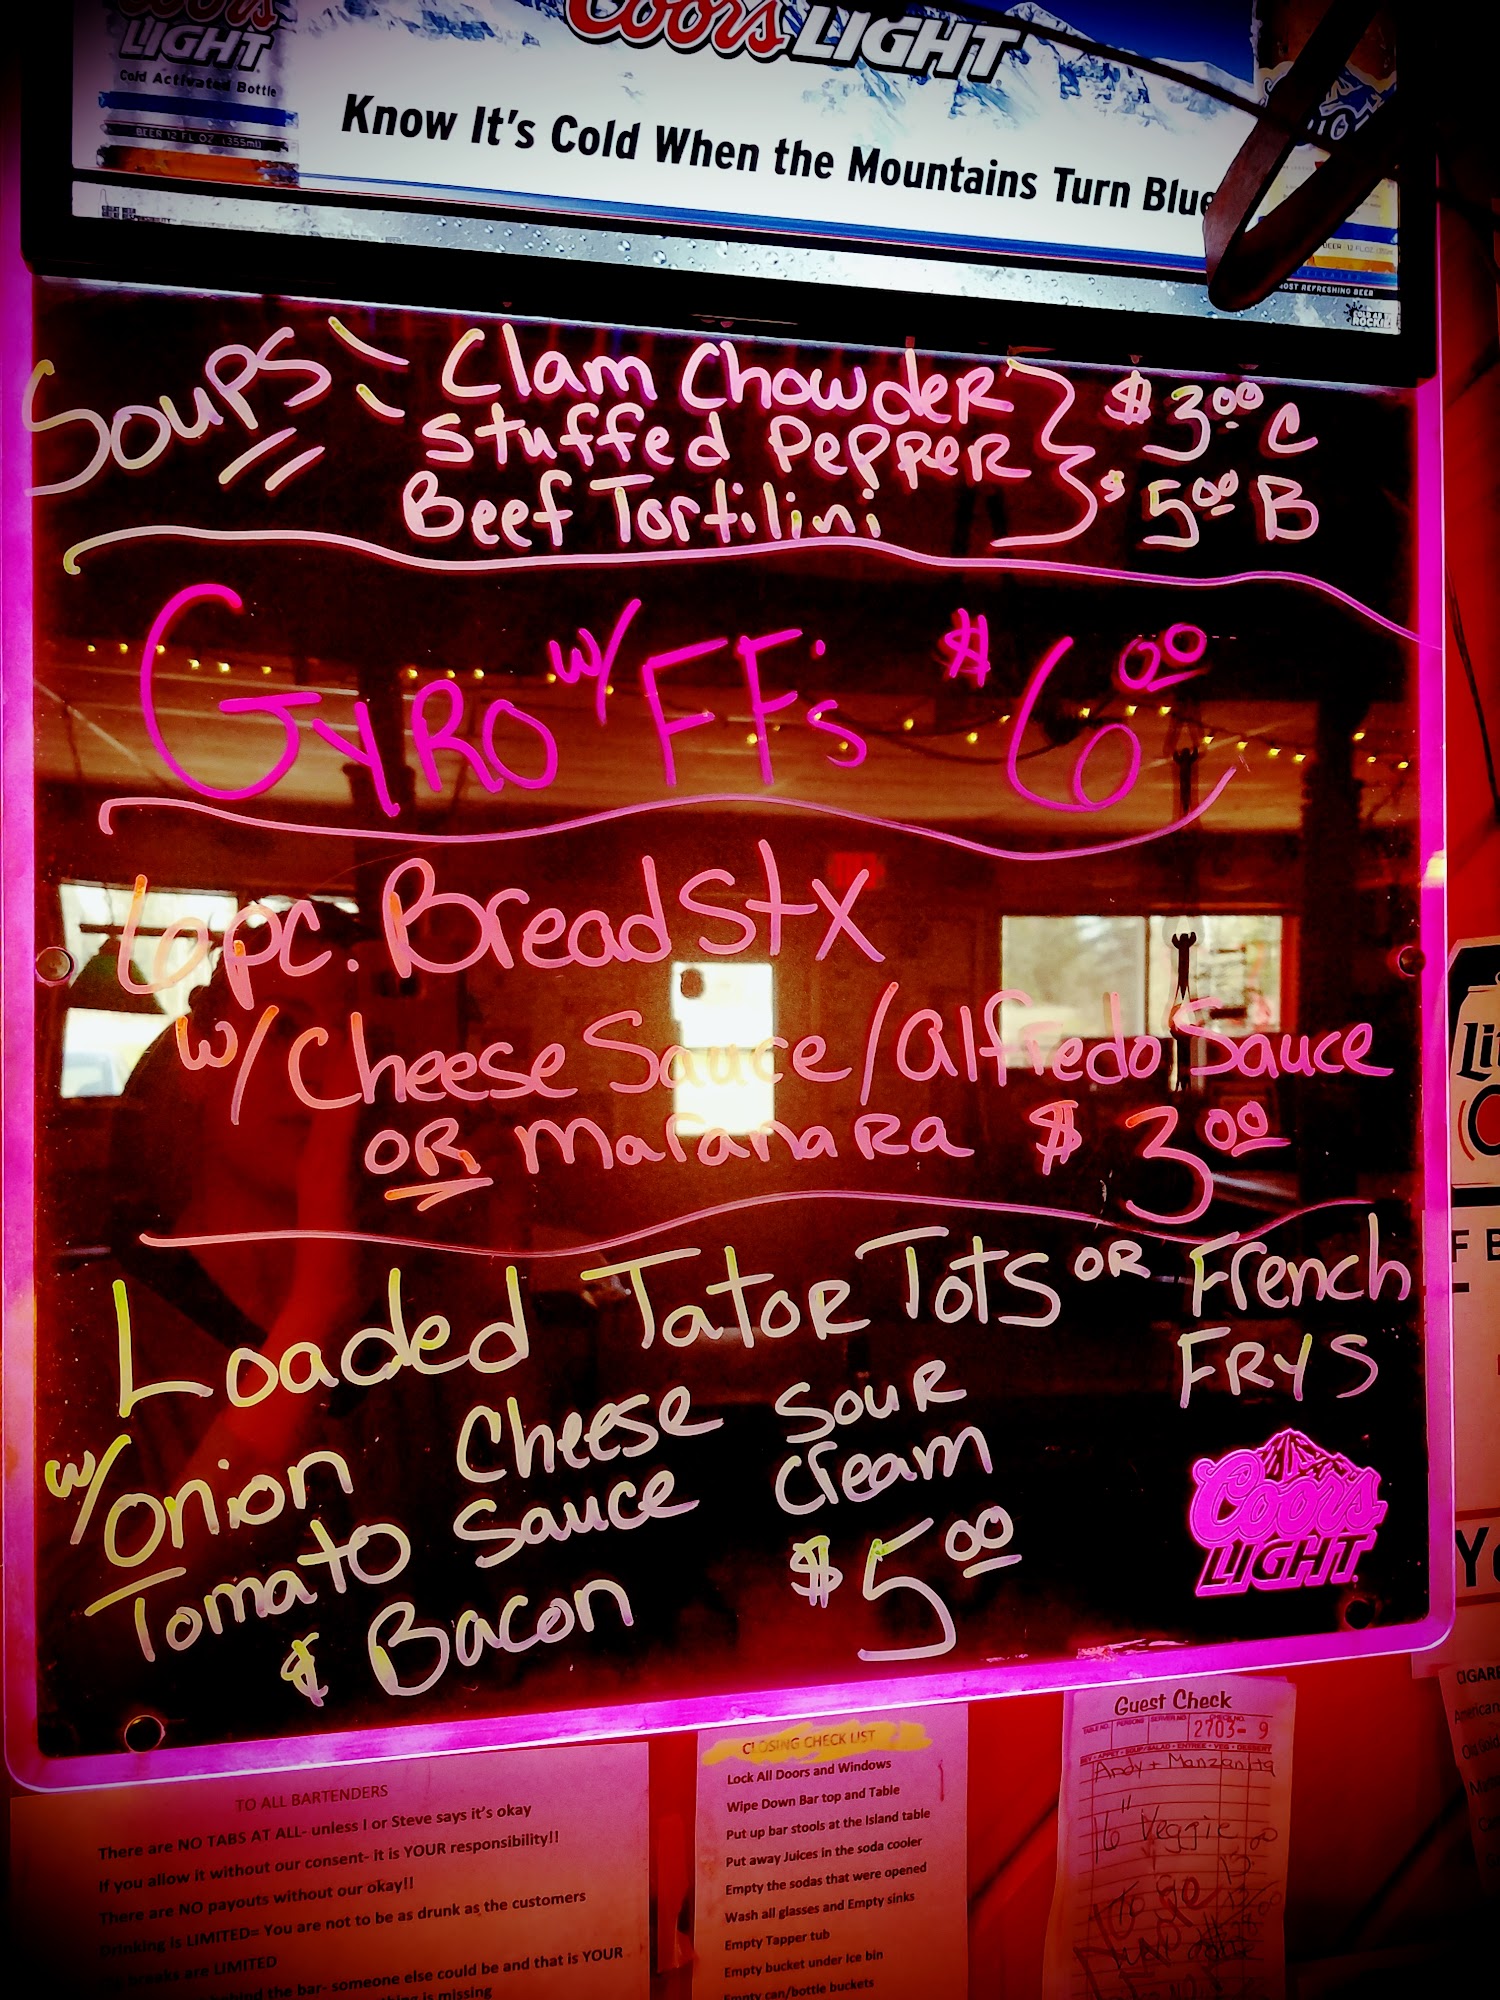 Coors LIGHT
LIGHT
Cold Activated Bottle
BEER 12 FL OZ (355ml)
Know It's Cold When the Mountains Turn Blue
MOST REFRESHING BEER
Soups: Clam Chowder $3.00 C
Stuffed Pepper
Beef Tortilini $5.00 B
Gyro w/ FF's $6.00
6pc. Bread Stx
w/ Cheese Sauce / alfredo Sauce
OR maranara $3.00
Loaded Tator Tots OR French
FRYS
w/ Onion Cheese Sour
Tomato Sauce Cream
& Bacon $5.00
Coors
LIGHT
TO ALL BARTENDERS
There are NO TABS AT ALL- unless I or Steve says it's okay
If you allow it without our consent- it is YOUR responsibility!!
There are NO payouts without our okay!!
Drinking is LIMITED= You are not to be as drunk as the customers
breaks are LIMITED
behind the bar- someone else could be and that is YOUR
is missing
CLOSING CHECK LIST
Lock All Doors and Windows
Wipe Down Bar top and Table
Put up bar stools at the Island table
Put away Juices in the soda cooler
Empty the sodas that were opened
Wash all glasses and Empty sinks
Empty Tapper tub
Empty bucket under Ice bin
Empty can/bottle buckets
Guest Check
2703- 9
Andy + Manzanita
16" Veggie